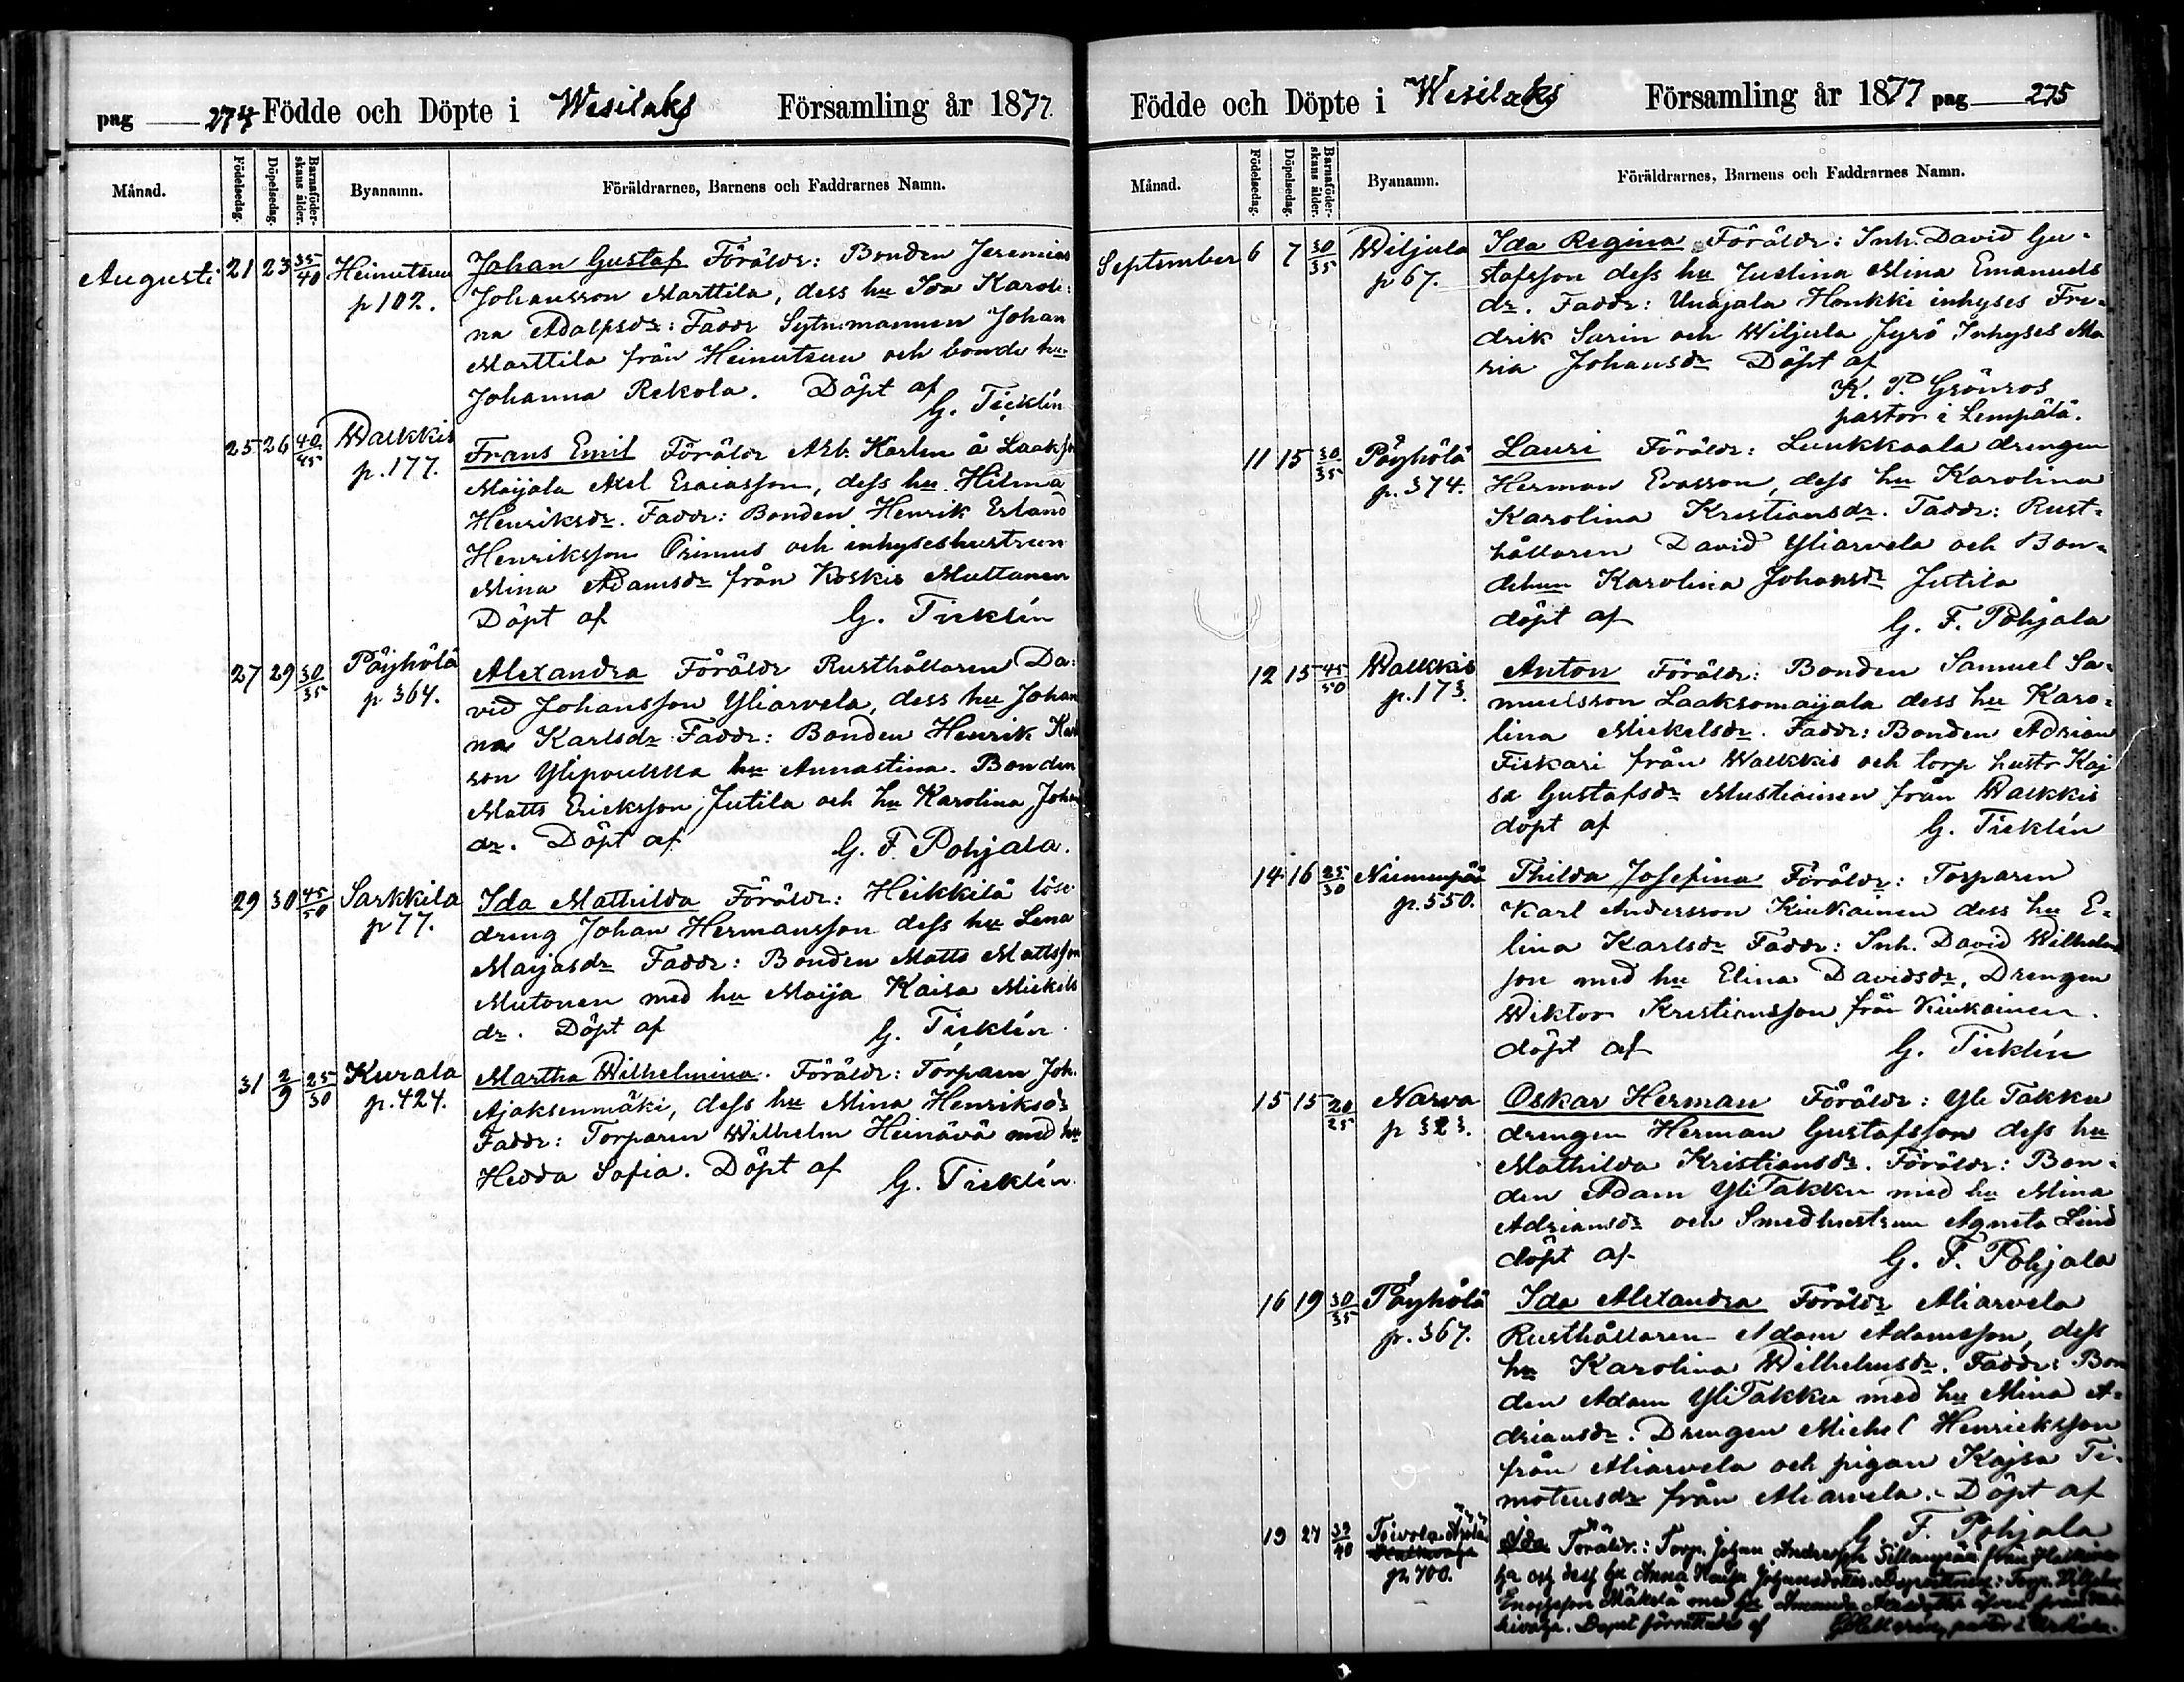 pag 274 Födde och Döpte i Wesilaks Församling år 1877.
Månad. Födelsedag. Döpelsedag. Barnaföderskans ålder. Byanamn. Föräldrarnes, Barnens och Faddrarnes Namn.
Augusti 21 23 35/40 Heinutsuu Johan Gustaf Föräldr: Bonden Jeremias
p 102. Johansson Marttila, dess hu Ida Karoli-
na Adalfsdr: Faddr Sytn.mannen Johan
Marttila från Heinutsuu och bonde hu
Johanna Rekola. Döpt af
G. Ticklén
25 26 40/45 Walkkis Frans Emil Föräldr Arb. Karlen å Laakso
p. 177. Maijala Axel Esaiasson, dess hu Hilma
Henriksdr. Faddr: Bonden Henrik Erland
Henriksson Primus och inhyseshustrun
Mina Adamsdr från Koskis Muttanen
Döpt af G. Ticklén
27 29 30/35 Pöyhölä Alexandra Föräldr Rusthållaren Da-
p 364. vid Johansson Yliarvela, dess hu Johan
na Karlsdr Faddr: Bonden Henrik Karl
son Ylipoukka hu Annastina. Bonden
Matts Ericksson Jutila och hu Karolina Johans
dr. Döpt af G. F. Pohjala.
29 30 45/50 Sarkkila Ida Mathilda Föräldr: Heikkilä löse
p 77. dreng Johan Hermansson dess hu Lena
Maijasdr Faddr: Bonden Matts Mattsson
Mutonen med hu Maija Kaisa Mickels
dr. Döpt af G. Ticklén
31 2/9 25/30 Kurala Martha Wilhelmina. Föräldr: Torparn Joh.
p. 424. Ajaksenmäki, dess hu Mina Henriksdr
Faddr: Torparen Wilhelm Heinävä med hu
Hedda Sofia. Döpt af G. Ticklén
Födde och Döpte i Wesilaks Församling år 1877 pag 275
Månad. Födelsedag. Döpelsedag. Barnaföderskans ålder. Byanamn. Föräldrarnes, Barnens och Faddrarnes Namn.
September 6 7 30/35 Wiljala Ida Regina Föräldr: Inh. David Gu-
p 67. stafsson dess hu Justina Mina Emanuels
dr. Faddr: Unajala Honkki inhyses Fre-
drik Sarin och Wiljala Jyrö Inhyses Ma
ria Johansdr Döpt af
K. P. Grönros
pastor i Lempälä.
11 15 30/35 Pöyhölä Lauri Föräldr: Luukkaala drengen
p. 374. Herman Evasson, dess hu Karolina
Karolina Kristiansdr. Faddr: Rust-
hållaren David Yliarvela och Bon-
dehun Karolina Johansdr Jutila
döpt af G. F. Pohjala
12 15 45/50 Walkkis Anton Föräldr: Bonden Samuel Sa-
p. 173. muelsson Laaksomaijala dess hu Karo-
lina Mickelsdr. Faddr: Bonden Adrian
Fiskari från Walkkis och torp hustr Kaj
sa Gustafsdr Mustiainen från Walkkis
döpt af G. Ticklén
14 16 25/30 Niemenpää Thilda Josefina Föräldr: Torparen
p. 550. Karl Andersson Kiukainen dess hu E-
lina Karlsdr Faddr: Inh. David Wilhelms
son med hu Elina Davidsdr, Drengen
Wiktor Kristiansson från Kiukainen.
döpt af G. Ticklén
15 15 20/25 Narva Oskar Herman Föräldr: Yli Takku
p 323. drengen Herman Gustafsson dess hu
Mathilda Kristiansdr. Föräldr: Bon-
den Adam YliTakku med hu Mina
Adriansdr och Smedhustrun Agneta Lind
döpt af G. F. Pohjala
16 19 30/35 Pöyhölä Ida Alexandra Föräldr Aliarvela
p. 367. Rusthållaren Adam Adamsson, dess
hu Karolina Wilhelmsdr. Faddr: Bon
den Adam YliTakku med hu Mina A-
driansdr. Drengen Michel Henricksson
från Aliarvela och pigan Kajsa Ti-
moteusdr från Aliarvela. Döpt af
G. F. Pohjala
19 27 39/40 Toivola Ida Föräldr.: Torp. Johan Andersson Sillanpää från
p. 700. och dess hu Anna Johansdotter. Torp.
Enocksson Mäkelä med hu Amanda
Dopet förrättades af pastor i